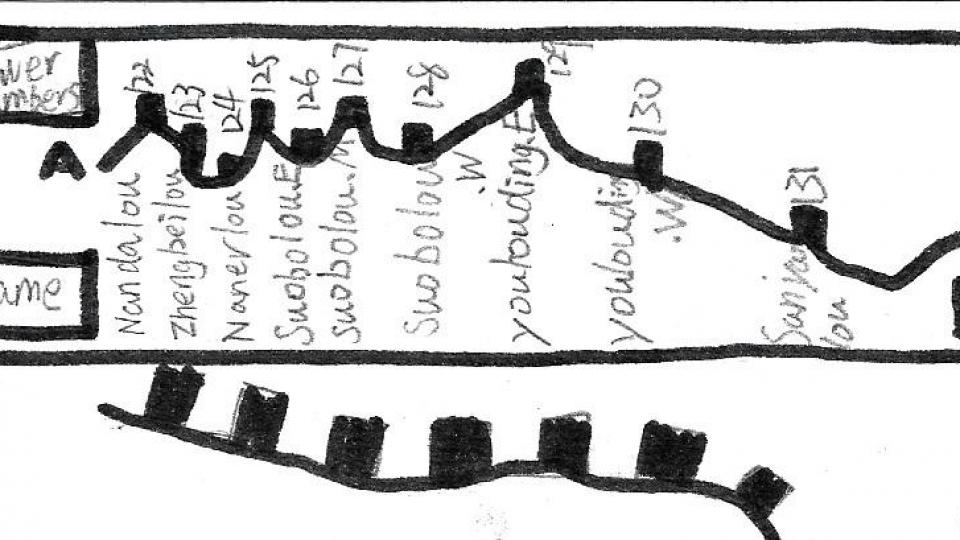 122
123
124
125
126
127
128
129
130
131
A
Nandalou
Zhengbeilou
Nanerlou
SuobolouE
Suobolou.M
Suobolou
.W
youloudingE
youlouding
.W
lou